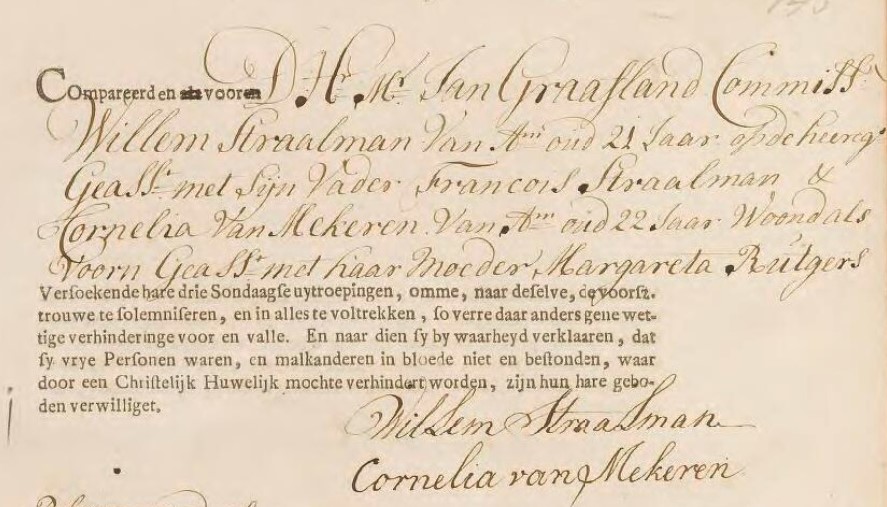 Compareerden als vooren D Hr. Mr. Jan Graafland Commiss.
Willem Straalman Van Am oud 21 Jaar op de heereg.
Geasst. met Sijn Vader Francois Straalman &
Cornelia Van Mekeren Van Am oud 22 Jaar Woond als
Voorn Geasst. met haar Moeder Margareta Rutgers
Versoekende hare drie Sondaagse uytroepingen, omme, naar deselve, de voorsz.
trouwe te solemniseren, en in alles te voltrekken, so verre daar anders gene wet-
tige verhinderinge voor en valle. En naar dien sy by waarheyd verklaaren, dat
sy vrye Personen waren, en malkanderen in bloede niet en bestonden, waar
door een Christelijk Huwelijk mochte verhindert worden, zijn hun hare gebo-
den verwilliget.
Willem Straalman
Cornelia van Mekeren